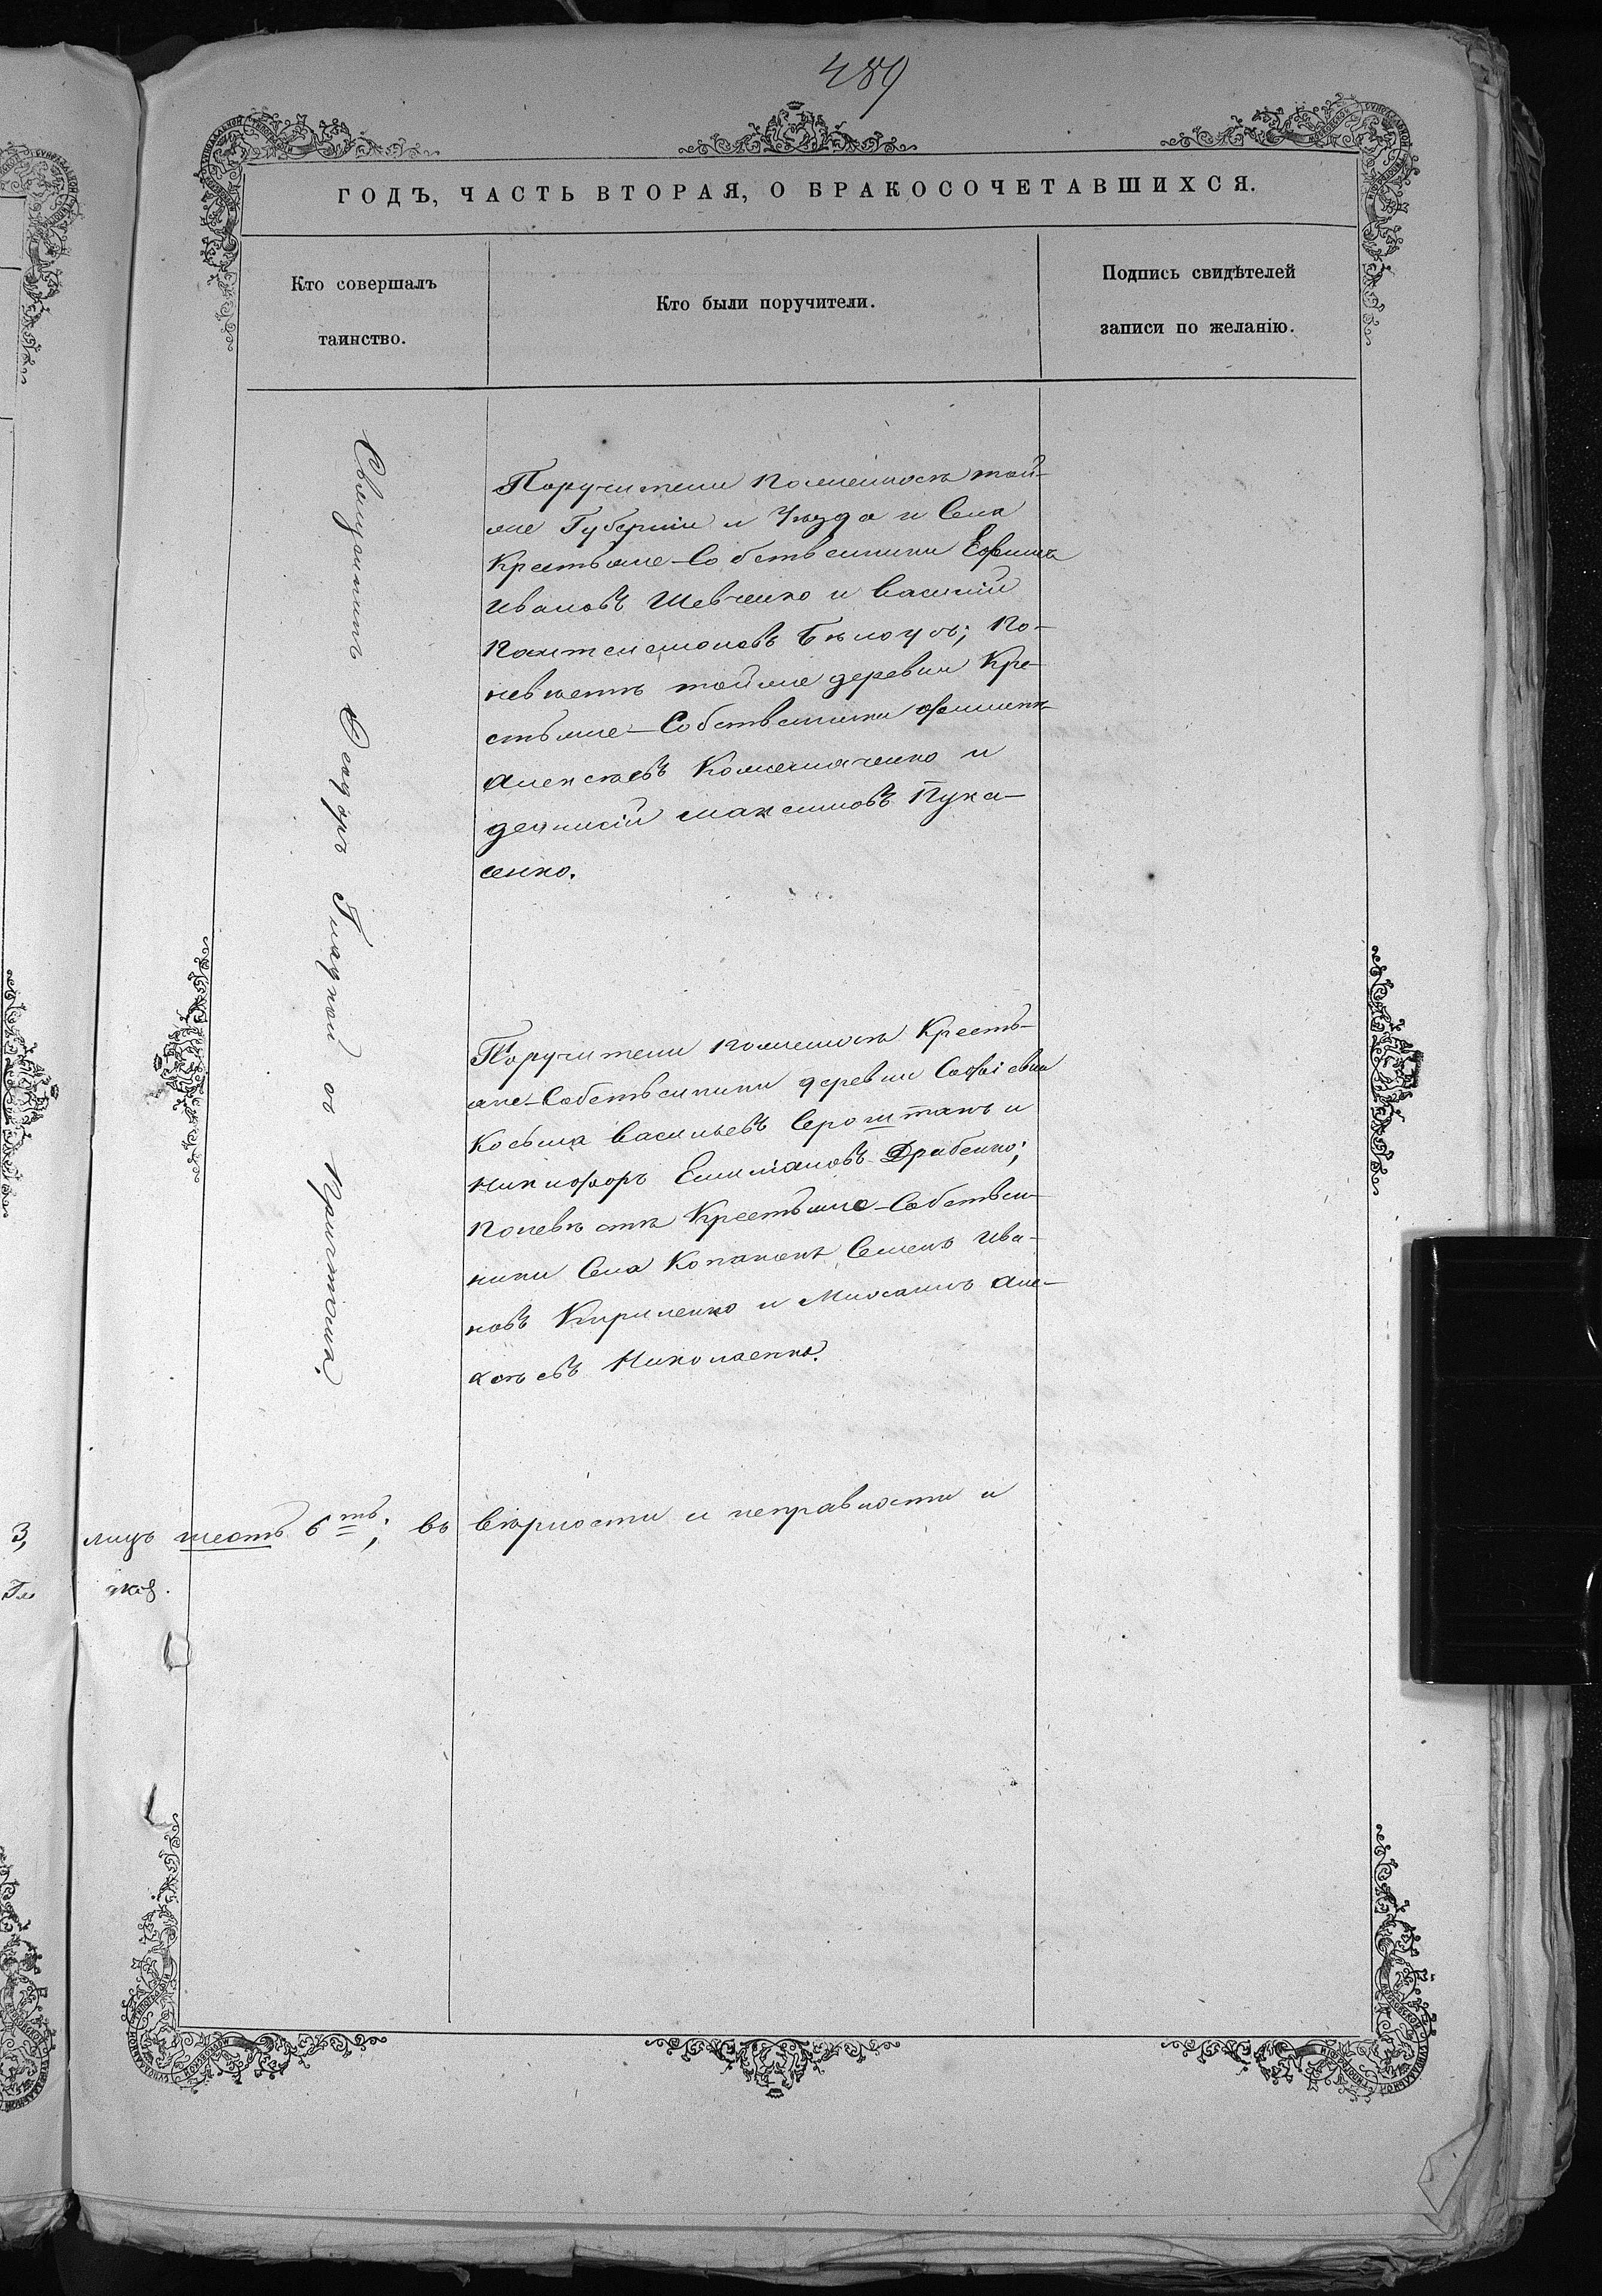 489
ГОДЪ, ЧАСТЬ ВТОРАЯ, О БРАКОСОЧЕТАВШИХСЯ.
Кто совершалъ
таинство.
Кто были поручители.
Подпись свидѣтелей
записи по желанію.
Священникъ Ѳеодоръ съ Причтомъ.
Поручители по женихѣ той-
же Губерніи и Уѣзда и Села
Крестьяне-Собственники Ефимъ
Ивановъ Шевченко и Василій
Пантелеимоновъ Бѣлоусъ; По-
невѣстѣ тойже деревни Кре-
стьяне-Собственники
Алексѣевъ и
Максимовъ
сенко.
Поручители по женихѣ Кресть-
яне-Собственники деревни Софіевки
Косьма Васильевъ Сероштанъ и
Никифоръ Емиліановъ Драбенко;
По невѣстѣ Крестьяне-Собствен-
ники Села Копанокъ Семенъ Ива-
новъ Кириленко и Михаилъ Але-
ксѣевъ Николаенко.
3, лицъ шесть 6ть; въ вѣрности и исправности и